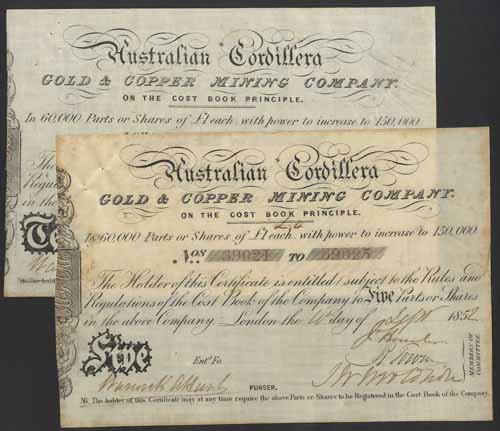 Australian Cordillera
GOLD & COPPER MINING COMPANY.
ON THE COST BOOK PRINCIPLE.
In 60,000 Parts or Shares of £1 each, with power to increase to 150,000
The
Regul
in the
Australian Cordillera
GOLD & COPPER MINING COMPANY.
ON THE COST BOOK PRINCIPLE.
In 60,000 Parts or Shares of £1 each, with power to increase to 150,000
Nos 59021 TO 59025
The Holder of this Certificate is entitled (subject to the Rules and
Regulations of the Cost Book of the Company to Five Parts or Shares
in the above Company. London the day of Sept 1852
Five
Entd. Fo.
PURSER.
MEMBERS OF COMMITTEE
NB. The holder of this Certificate may at any time require the above Parts or Shares to be Registered in the Cost Book of the Company.